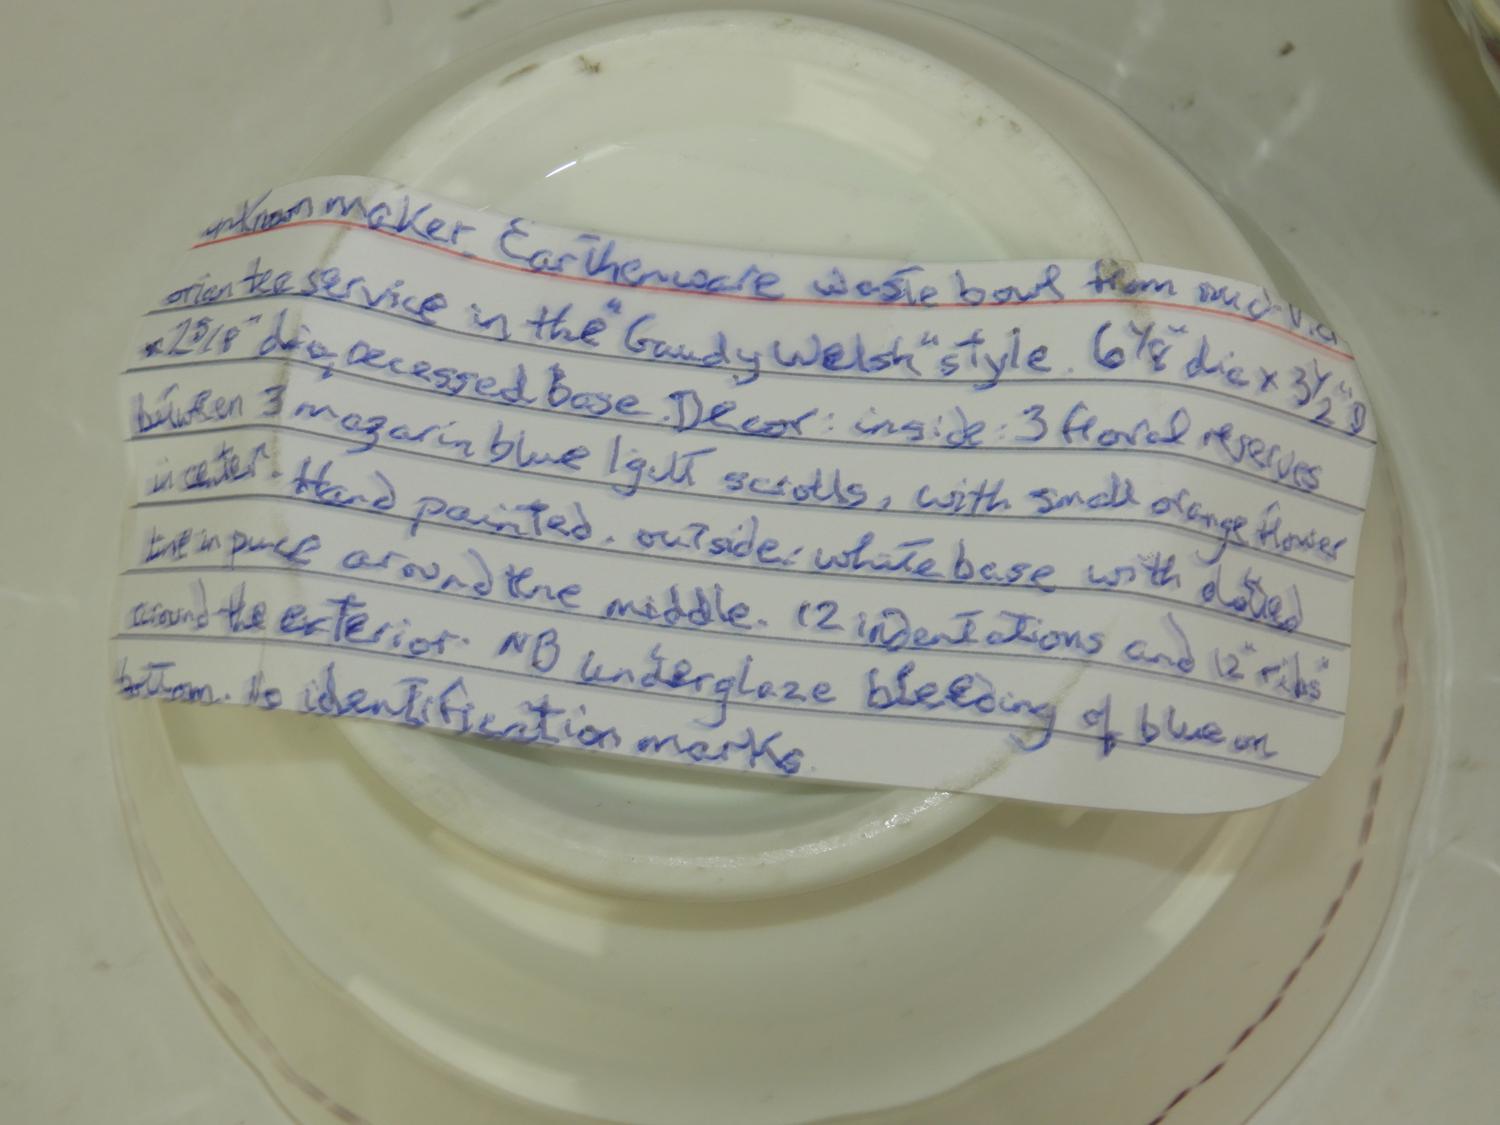 unknown maker. Earthenware waste bowl from mid-Vict
orian tea service in the "Gaudy Welsh" style. 6 1/8" dia x 3 1/2" D
x 2 5/8" dia, recessed base. Decor: inside: 3 floral reserves
between 3 mazarin blue light scrolls, with small orange flower
in center. Hand painted. outside: white base with dotted
line in puce around the middle. 12 indentations and 12 "ribs"
around the exterior. NB underglaze bleeding of blue on
bottom. No identification marks.